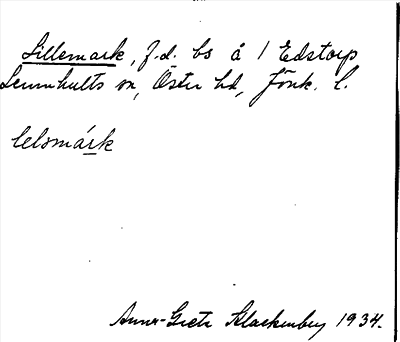 Lillemark, f.d. bs å 1 Edstorp
Lemnhults sn, Östra hd, Jönk. l.
lelsmárk
Anna-Greta Klackenberg 1934.